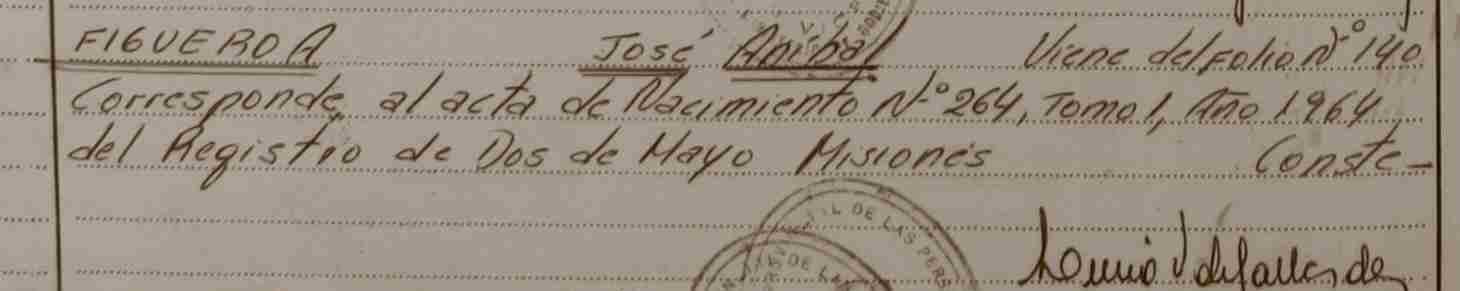 FIGUEROA José Anibal Viene del Folio Nº 140
Corresponde, al acta de Nacimiento Nº 264, Tomo 1, Año 1964
del Registro de Dos de Mayo Misiones Conste-
DE LAS PERS
DE LA